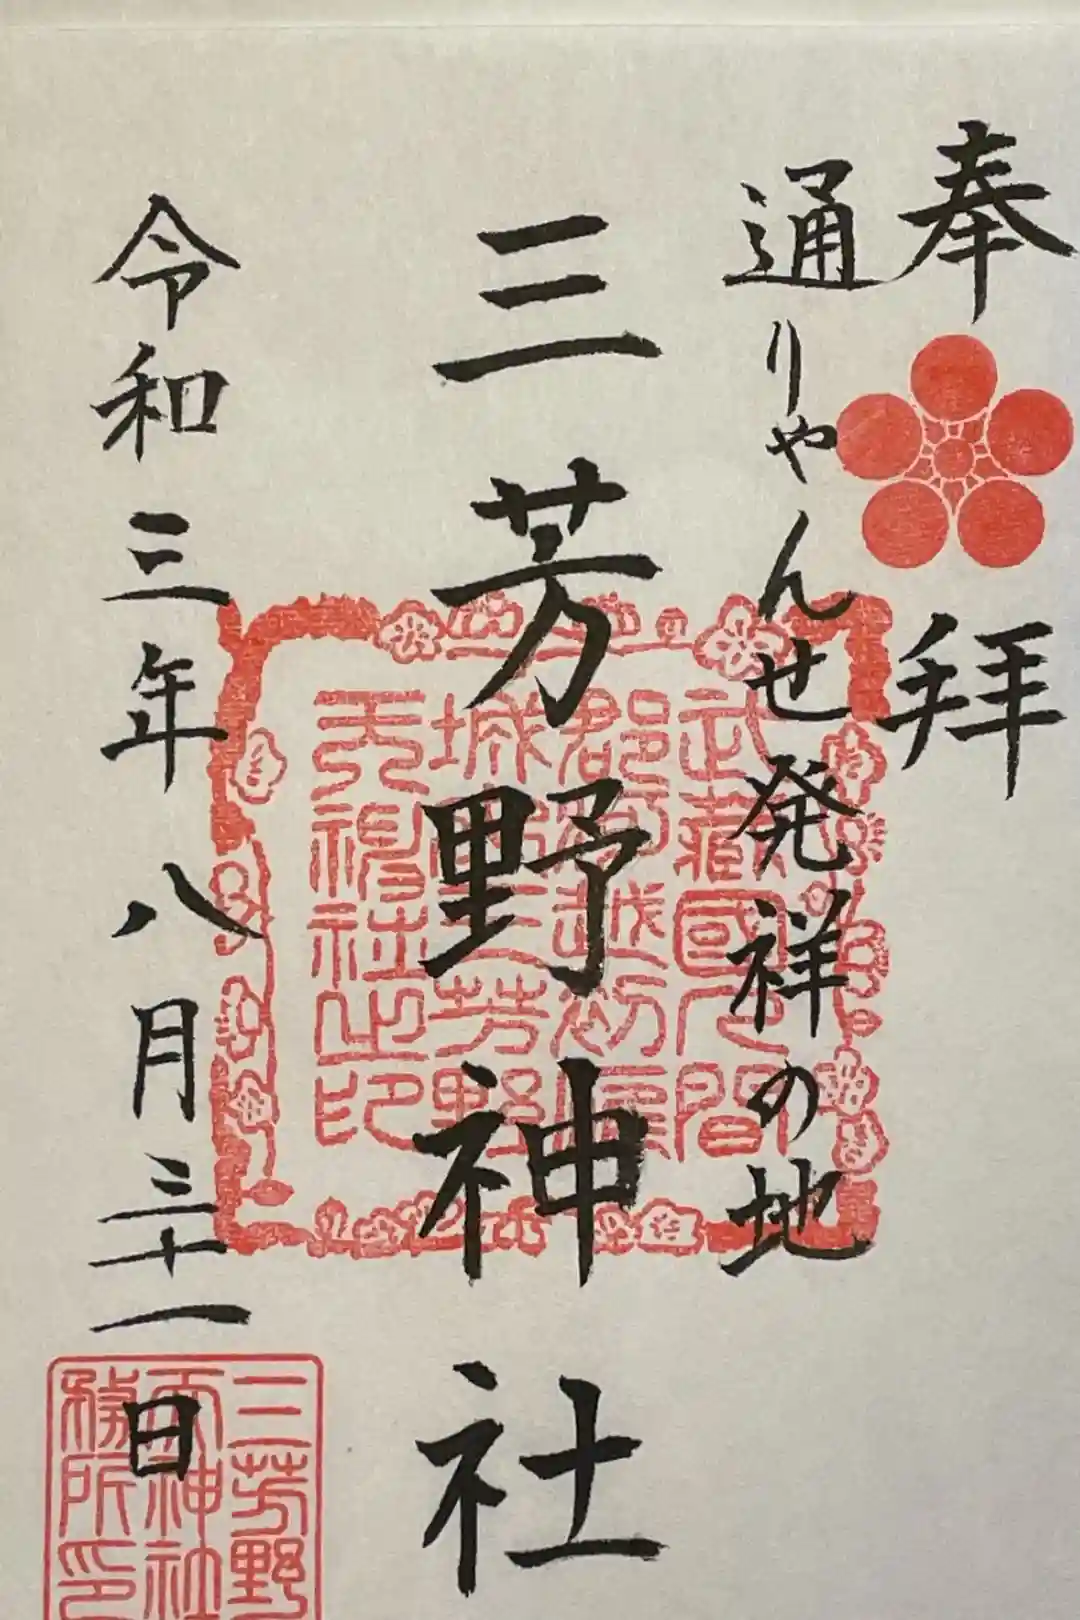 奉拝
通りゃんせ発祥の地
三芳野神社
令和三年八月三十一日
武藏國入間
郡河越初雁
城内三芳野
天神社之印
三芳野
神社
務所印